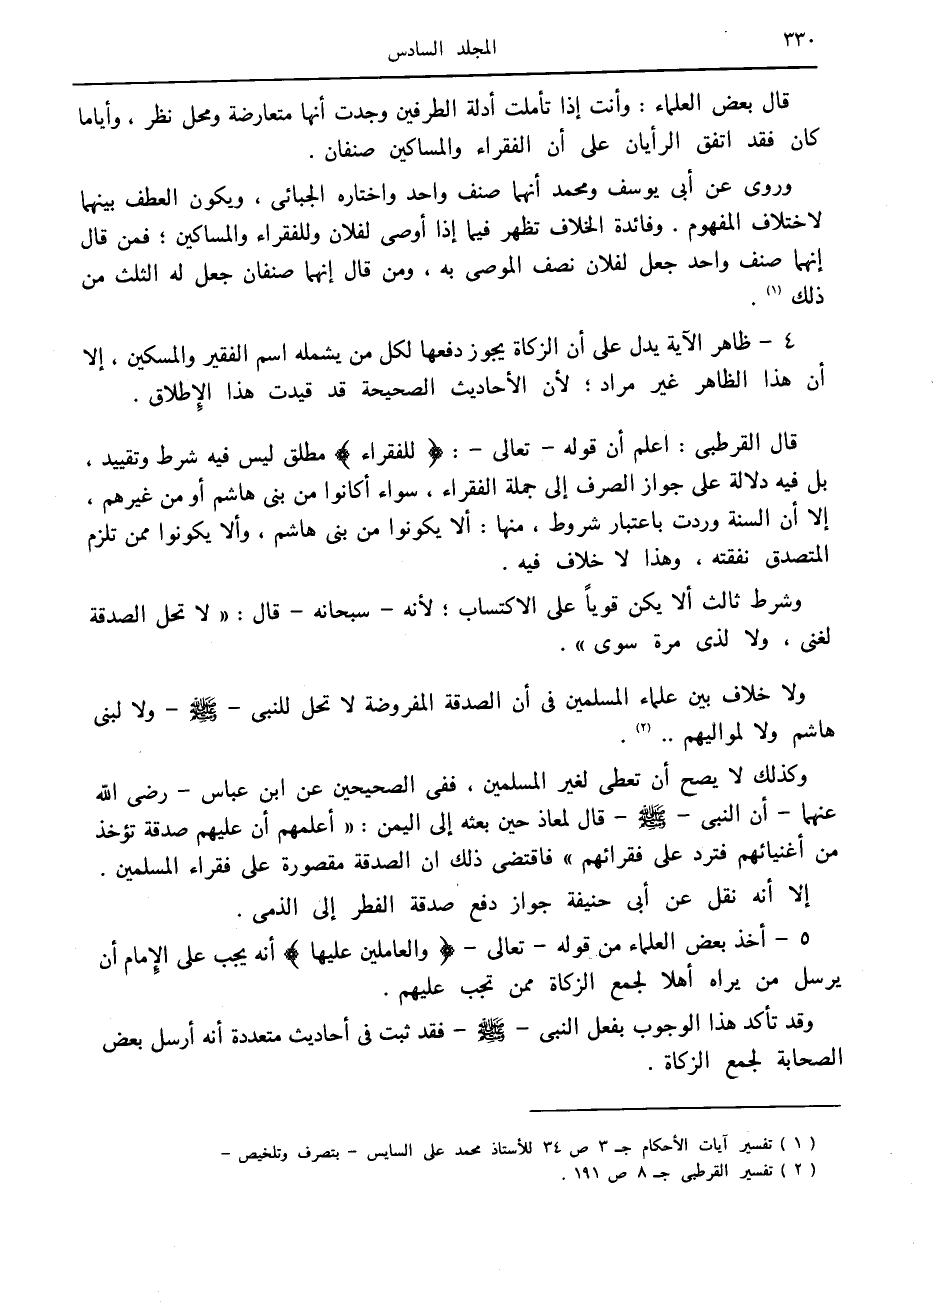 ٣٣٠
المجلد السادس
قال بعض العلماء : وأنت إذا تأملت أدلة الطرفين وجدت أنها متعارضة ومحل نظر ، وأياما
كان فقد اتفق الرأيان على أن الفقراء والمساكين صنفان .
وروى عن أبى يوسف ومحمد أنهما صنف واحد واختاره الجبائى ، ويكون العطف بينهما
لاختلاف المفهوم . وفائدة الخلاف تظهر فيما إذا أوصى لفلان وللفقراء والمساكين ؛ فمن قال
إنهما صنف واحد جعل لفلان نصف الموصى به ، ومن قال إنهما صنفان جعل له الثلث من
ذلك (١) .
٤ - ظاهر الآية يدل على أن الزكاة يجوز دفعها لكل من يشمله اسم الفقير والمسكين ، إلا
أن هذا الظاهر غير مراد ؛ لأن الأحاديث الصحيحة قد قيدت هذا الإطلاق .
قال القرطبى : اعلم أن قوله - تعالى - : ﴿ للفقراء ﴾ مطلق ليس فيه شرط وتقييد ،
بل فيه دلالة على جواز الصرف إلى جملة الفقراء ، سواء أكانوا من بنى هاشم أو من غيرهم ،
إلا أن السنة وردت باعتبار شروط ، منها : ألا يكونوا من بنى هاشم ، وألا يكونوا ممن تلزم
المتصدق نفقته ، وهذا لا خلاف فيه .
وشرط ثالث ألا يكن قوياً على الاكتساب ؛ لأنه - سبحانه - قال : « لا تحل الصدقة
لغنى ، ولا لذى مرة سوى » .
ولا خلاف بين علماء المسلمين فى أن الصدقة المفروضة لا تحل للنبى - ﷺ - ولا لبنى
هاشم ولا لمواليهم .. (٢) .
وكذلك لا يصح أن تعطى لغير المسلمين ، ففى الصحيحين عن ابن عباس - رضى الله
عنهما - أن النبى - ﷺ - قال لمعاذ حين بعثه إلى اليمن : « أعلمهم أن عليهم صدقة تؤخذ
من أغنيائهم فترد على فقرائهم » فاقتضى ذلك ان الصدقة مقصورة على فقراء المسلمين .
إلا أنه نقل عن أبى حنيفة جواز دفع صدقة الفطر إلى الذمى .
٥ - أخذ بعض العلماء من قوله - تعالى - ﴿ والعاملين عليها ﴾ أنه يجب على الإمام أن
يرسل من يراه أهلا لجمع الزكاة ممن تجب عليهم .
وقد تأكد هذا الوجوب بفعل النبى - ﷺ - فقد ثبت فى أحاديث متعددة أنه أرسل بعض
الصحابة لجمع الزكاة .
( ١ ) تفسير آيات الأحكام جـ ٣ ص ٣٤ للأستاذ محمد على السايس - بتصرف وتلخيص -
( ٢ ) تفسير القرطبى جـ ٨ ص ١٩١ .